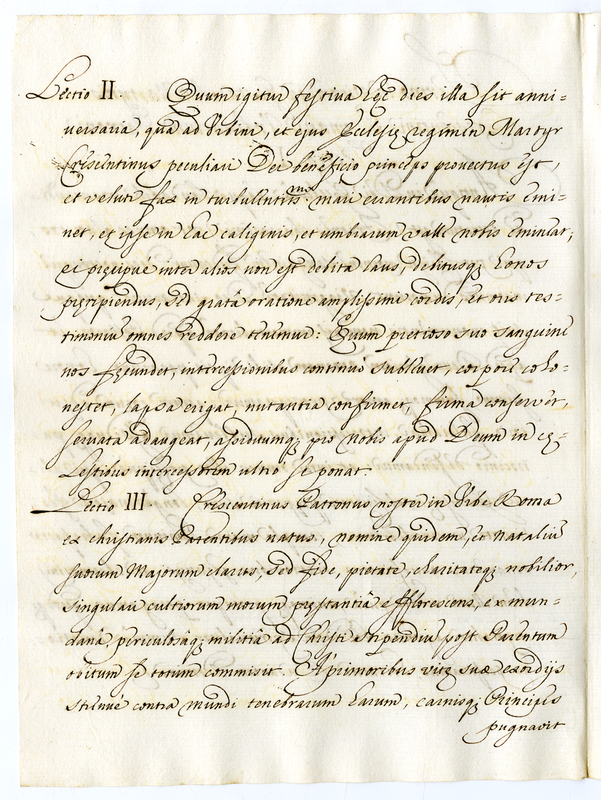 Lectio II. Quum igitur festiva hęc dies illa sit anni=
versaria, quâ ad Urbini, et ejus Ecclesię regimen Martyr
Crescentinus peculiari Dei beneficio princeps provectus est,
et veluti fax in turbulentiss.mo mari errantibus nautis emi=
net, et ipse in hac caliginis, et umbrarum valle nobis emineat;
ei pręcipuè inter alios non est debita laus, debitusq; honos
pręripiendus, sed gratâ oratione amplissimi cordis, et oris tes=
timoniũ omnes reddere tenemur: Quum pretioso suo sanguine
nos fęcundet, intercessionibus continuò sublevet, corpore coho=
nestet, lapsa erigat, nutantia confirmet, firma conservet,
servata adaugeat, assiduumq; pro nobis apud Deum in cę=
lestibus intercessorem ultro se ponat.
Lectio III. Crescentinus Patronus noster in Urbe Roma
ex christianis Parentibus natus, nomine quidem, et nataliũ
suorum Majorum clarus, sed fide, pietate, charitateq; nobilior,
singulari cultiorum morum pręstantiâ efflorescens, ex mun=
danâ, periculosâq; militiâ ad Christi stipendia post Parentum
obitum se totum commisit. A primoribus vitę suæ exordijs
strenuè contra mundi tenebrarum harum, carnisq; Principes
pugnavit